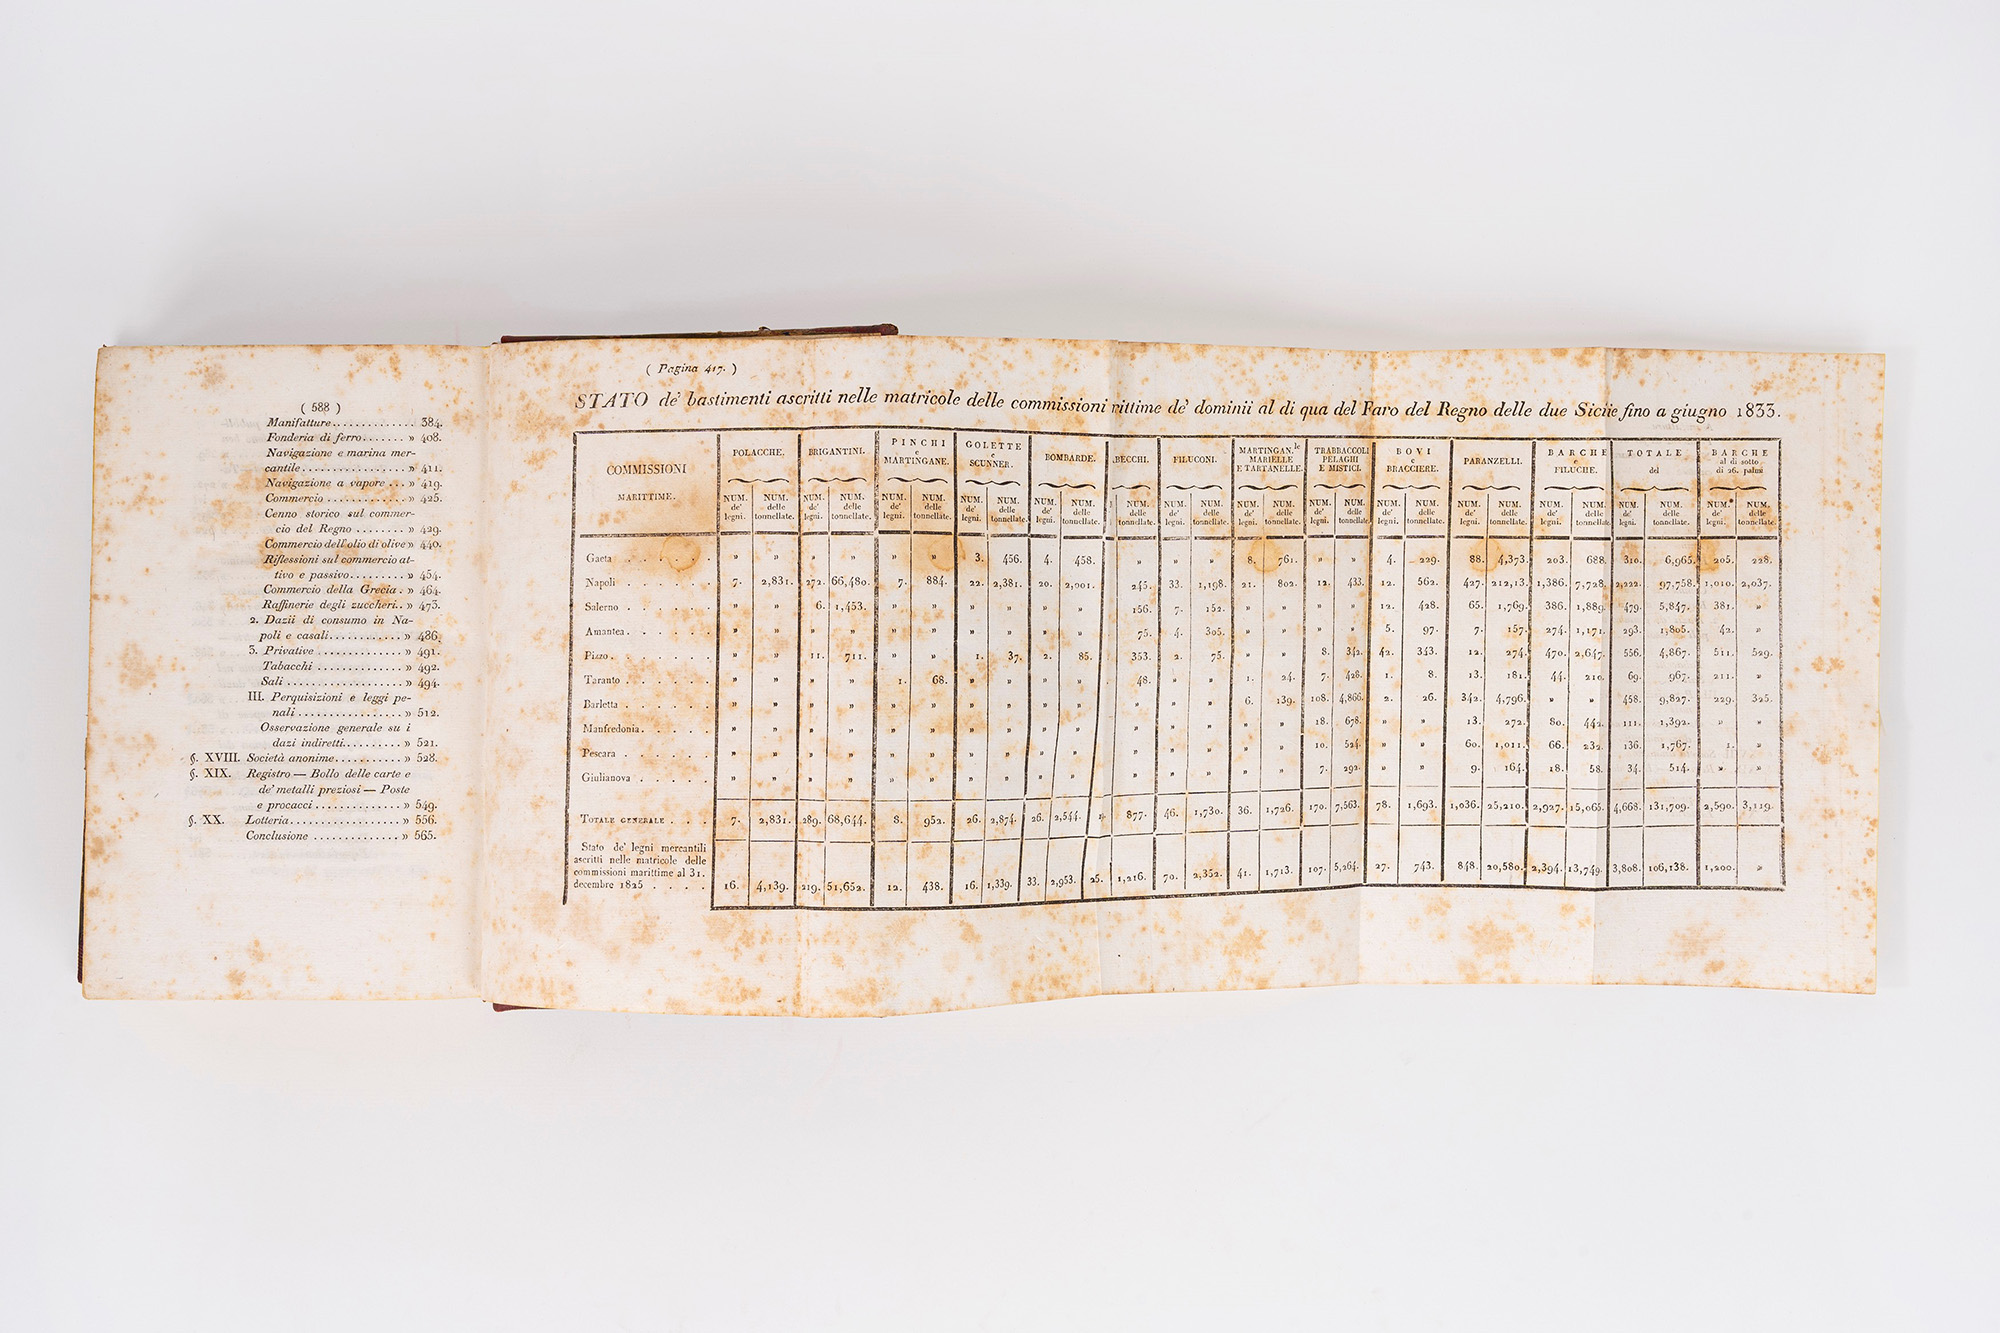 ( 588 )
Manifatture.............. 384.
Fonderia di ferro....... » 408.
Navigazione e marina mer-
cantile.................. » 411.
Navigazione a vapore... » 419.
Commercio............. » 425.
Cenno storico sul commer-
cio del Regno........ » 429.
Commercio dell'olio di olive » 440.
Riflessioni sul commercio at-
tivo e passivo......... » 454.
Commercio della Grecia. » 464.
Raffinerie degli zuccheri.. » 473.
2. Dazii di consumo in Na-
poli e casali............ » 486.
3. Privative.............. » 491.
Tabacchi................ » 492.
Sali.................... » 494.
III. Perquisizioni e leggi pe-
nali................... » 512.
Osservazione generale su i
dazi indiretti.......... » 521.
§. XVIII. Società anonime........... » 528.
§. XIX. Registro — Bollo delle carte e
de' metalli preziosi — Poste
e procacci.............. » 549.
§. XX. Lotteria.................. » 556.
Conclusione.............. » 565.
( Pagina 417. )
STATO de' bastimenti ascritti nelle matricole delle commissioni rittime de' dominii al di qua del Faro del Regno delle due Sicilie fino a giugno 1833.
COMMISSIONI MARITTIME. POLACCHE. BRIGANTINI. PINCHI e MARTINGANE. GOLETTE e SCUNNER. BOMBARDE. BECCHI. FILUCONI. MARTINGAN.le MARIELLE E TARTANELLE. TRABBACCOLI PELAGHI E MISTICI. BOVI e BRACCIERE. PARANZELLI. BARCHE e FILUCHE. TOTALE del BARCHE al di sotto di 26. palmi
NUM. de' legni. NUM. delle tonnellate. NUM. de' legni. NUM. delle tonnellate. NUM. de' legni. NUM. delle tonnellate. NUM. de' legni. NUM. delle tonnellate. NUM. de' legni. NUM. delle tonnellate. NUM. delle tonnellate. NUM. de' legni. NUM. delle tonnellate. NUM. de' legni. NUM. delle tonnellate. NUM. de' legni. NUM. delle tonnellate. NUM. de' legni. NUM. delle tonnellate. NUM. de' legni. NUM. delle tonnellate. NUM. de' legni. NUM. delle tonnellate. NUM. de' legni. NUM. delle tonnellate. NUM. de' legni. NUM. delle tonnellate.
Gaeta . . . . . » » » » » » 3. 456. 4. 458. » » » 8. 761. » » 4. 229. 88. 4,373. 203. 688. 310. 6,965. 205. 228.
Napoli . . . . . . 7. 2,831. 272. 66,480. 7. 884. 22. 2,381. 20. 2,001. 245. 33. 1,198. 21. 802. 12. 433. 12. 562. 427. 212,13. 1,386. 7,728. 2,222. 97,758. 1,010. 2,037.
Salerno . . . . . . » » 6. 1,453. » » » » » » 156. 7. 152. » » » » 12. 428. 65. 1,769. 386. 1,889. 479. 5,847. 381. »
Amantea. . . . . . » » » » » » » » » » 75. 4. 305. » » » » 5. 97. 7. 157. 274. 1,171. 293. 1,805. 42. »
Pizzo. . . . . . . » » 11. 711. » » 1. 37. 2. 85. 353. 2. 75. » » 8. 342. 42. 343. 12. 274. 470. 2,647. 556. 4,867. 511. 529.
Taranto . . . . . . » » » » 1. 68. » » » » 48. » » 1. 24. 7. 428. 1. 8. 13. 181. 44. 210. 69. 967. 211. »
Barletta . . . . . . » » » » » » » » » » » » » 6. 139. 108. 4,866. 2. 26. 342. 4,796. » » 458. 9,827. 229. 325.
Manfredonia. . . . . » » » » » » » » » » » » » » » 18. 678. » » 13. 272. 80. 442. 111. 1,392. » »
Pescara . . . . . . » » » » » » » » » » » » » » » 10. 524. » » 60. 1,011. 66. 232. 136. 1,767. 1. »
Giulianova . . . . . » » » » » » » » » » » » » » » 7. 292. » » 9. 164. 18. 58. 34. 514. » »
TOTALE GENERALE . . . 7. 2,831. 289. 68,644. 8. 952. 26. 2,874. 26. 2,544. 877. 46. 1,730. 36. 1,726. 170. 7,563. 78. 1,693. 1,036. 25,210. 2,927. 15,065. 4,668. 131,709. 2,590. 3,119.
Stato de' legni mercantili
ascritti nelle matricole delle
commissioni marittime al 31.
decembre 1825 . . . . 16. 4,139. 219. 51,652. 12. 438. 16. 1,339. 33. 2,953. 25. 1,216. 70. 2,352. 41. 1,713. 107. 5,264. 27. 743. 848. 20,580. 2,394. 13,749. 3,808. 106,138. 1,200. »